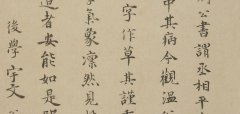 公書謂丞相平生
中其病今觀溫
字作草其謹重
氣象凜然見
道者安能如是
後學宇文